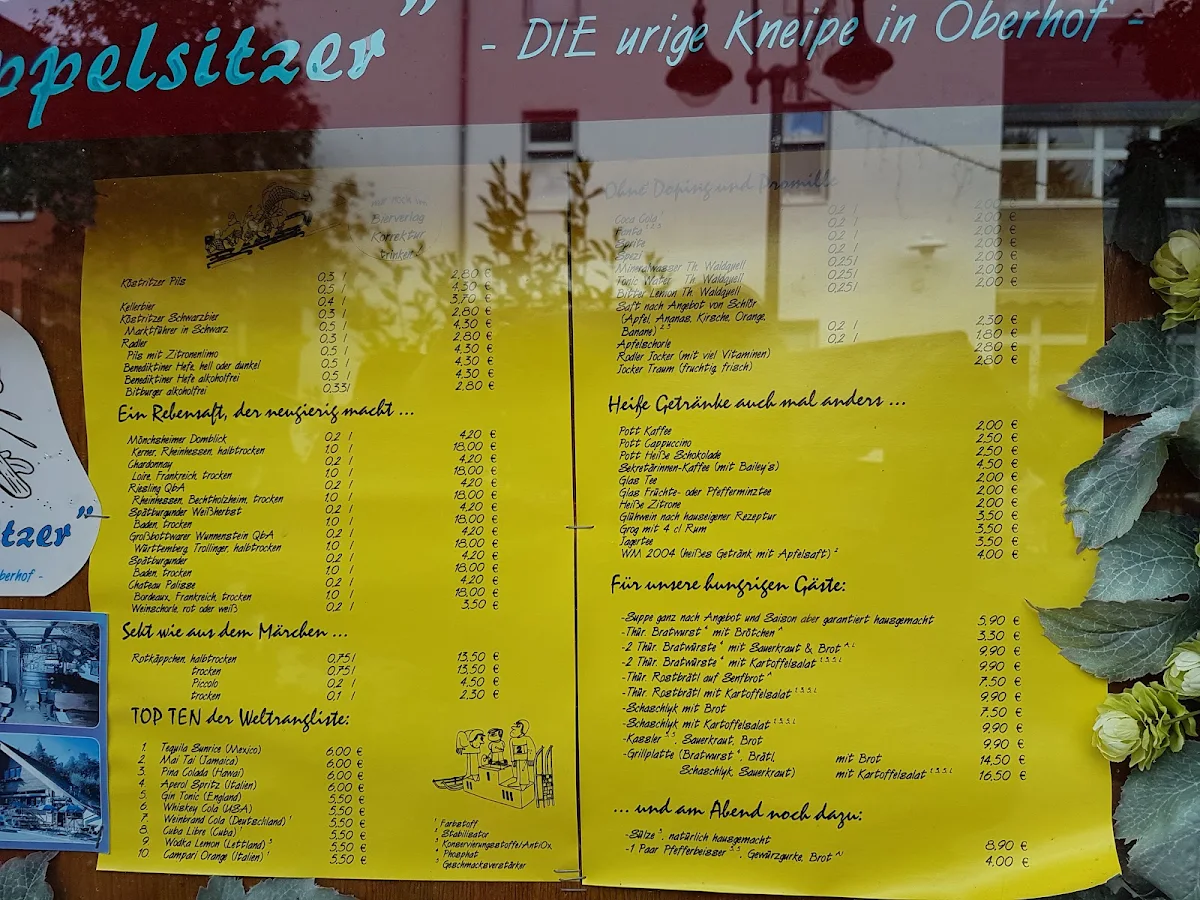 ppelsitzer" - DIE urige Kneipe in Oberhof -
Bierverlag
Korrektur
trinken
Köstritzer Pils 0,3 l 2,80 €
0,5 l 4,30 €
Kellerbier 0,4 l 3,70 €
Köstritzer Schwarzbier 0,3 l 2,80 €
Marktführer in Schwarz 0,5 l 4,30 €
Radler 0,3 l 2,80 €
Pils mit Zitronenlimo 0,5 l 4,30 €
Benediktiner Hefe, hell oder dunkel 0,5 l 4,30 €
Benediktiner Hefe alkoholfrei 0,5 l 4,30 €
Bitburger alkoholfrei 0,33l 2,80 €
Ein Rebensaft, der neugierig macht ...
Mönchsheimer Domblick 0,2 l 4,20 €
Kerner, Rheinhessen, halbtrocken 1,0 l 18,00 €
Chardonnay 0,2 l 4,20 €
Loire, Frankreich, trocken 1,0 l 18,00 €
Riesling QbA 0,2 l 4,20 €
Rheinhessen, Bechtholzheim, trocken 1,0 l 18,00 €
Spätburgunder Weißherbst 0,2 l 4,20 €
Baden, trocken 1,0 l 18,00 €
Großbottwarer Wunnenstein QbA 0,2 l 4,20 €
Württemberg, Trollinger, halbtrocken 1,0 l 18,00 €
Spätburgunder 0,2 l 4,20 €
Baden, trocken 1,0 l 18,00 €
Chateau Palisse 0,2 l 4,20 €
Bordeaux, Frankreich, trocken 1,0 l 18,00 €
Weinschorle, rot oder weiß 0,2 l 3,50 €
Seht wie aus dem Märchen ...
Rotkäppchen, halbtrocken 0,75 l 13,50 €
trocken 0,75 l 13,50 €
Piccolo 0,2 l 4,50 €
trocken 0,1 l 2,30 €
TOP TEN der Weltrangliste:
1. Tequila Sunrice (Mexico) 6,00 €
2. Mai Tai (Jamaica) 6,00 €
3. Pina Colada (Hawai) 6,00 €
4. Aperol Spritz (Italien) 6,00 €
5. Gin Tonic (England) 5,50 €
6. Whiskey Cola (USA) 5,50 €
7. Weinbrand Cola (Deutschland) ¹ 5,50 €
8. Cuba Libre (Cuba) ¹ 5,50 €
9. Wodka Lemon (Lettland) ³ 5,50 €
10. Campari Orange (Italien) ¹ 5,50 €
¹ Farbstoff
² Stabilisator
³ Konservierungsstoffe/AntiOx.
⁴ Phosphat
⁵ Geschmacksverstärker
Ohne Doping und Promille
Coca Cola 0,2 l 2,00 €
Fanta 0,2 l 2,00 €
Sprite 0,2 l 2,00 €
Spezi 0,2 l 2,00 €
Mineralwasser Th. Waldquell 0,25 l 2,00 €
Tonic Water Th. Waldquell 0,25 l 2,00 €
Bitter Lemon Th. Waldquell 0,25 l 2,00 €
Saft nach Angebot von Schlör
(Apfel, Ananas, Kirsche, Orange,
Banane) 0,2 l 2,30 €
Apfelschorle 0,2 l 1,80 €
Radler Jocker (mit viel Vitaminen) 2,80 €
Jocker Traum (fruchtig, frisch) 2,80 €
Heiße Getränke auch mal anders ...
Pott Kaffee 2,00 €
Pott Cappuccino 2,50 €
Pott Heiße Schokolade 2,50 €
Sekretärinnen-Kaffee (mit Bailey's) 4,50 €
Glas Tee 2,00 €
Glas Früchte- oder Pfefferminztee 2,00 €
Heiße Zitrone 2,00 €
Glühwein nach hauseigener Rezeptur 3,50 €
Grog mit 4 cl Rum 3,50 €
Jagertee 3,50 €
WM 2004 (heißes Getränk mit Apfelsaft) 4,00 €
Für unsere hungrigen Gäste:
-Suppe ganz nach Angebot und Saison aber garantiert hausgemacht 5,90 €
-Thür. Bratwurst ⁴ mit Brötchen 3,30 €
-2 Thür. Bratwürste ⁴ mit Sauerkraut & Brot 9,90 €
-2 Thür. Bratwürste ⁴ mit Kartoffelsalat 9,90 €
-Thür. Rostbrätl auf Senfbrot 7,50 €
-Thür. Rostbrätl mit Kartoffelsalat 9,90 €
-Schaschlyk mit Brot 7,50 €
-Schaschlyk mit Kartoffelsalat 9,90 €
-Kassler, Sauerkraut, Brot 9,90 €
-Grillplatte (Bratwurst ⁴, Brätl, mit Brot 14,50 €
Schaschlyk, Sauerkraut) mit Kartoffelsalat 16,50 €
... und am Abend noch dazu:
-Sülze, natürlich hausgemacht 8,90 €
-1 Paar Pfefferbeisser, Gewürzgurke, Brot 4,00 €
tzer"
berhof -